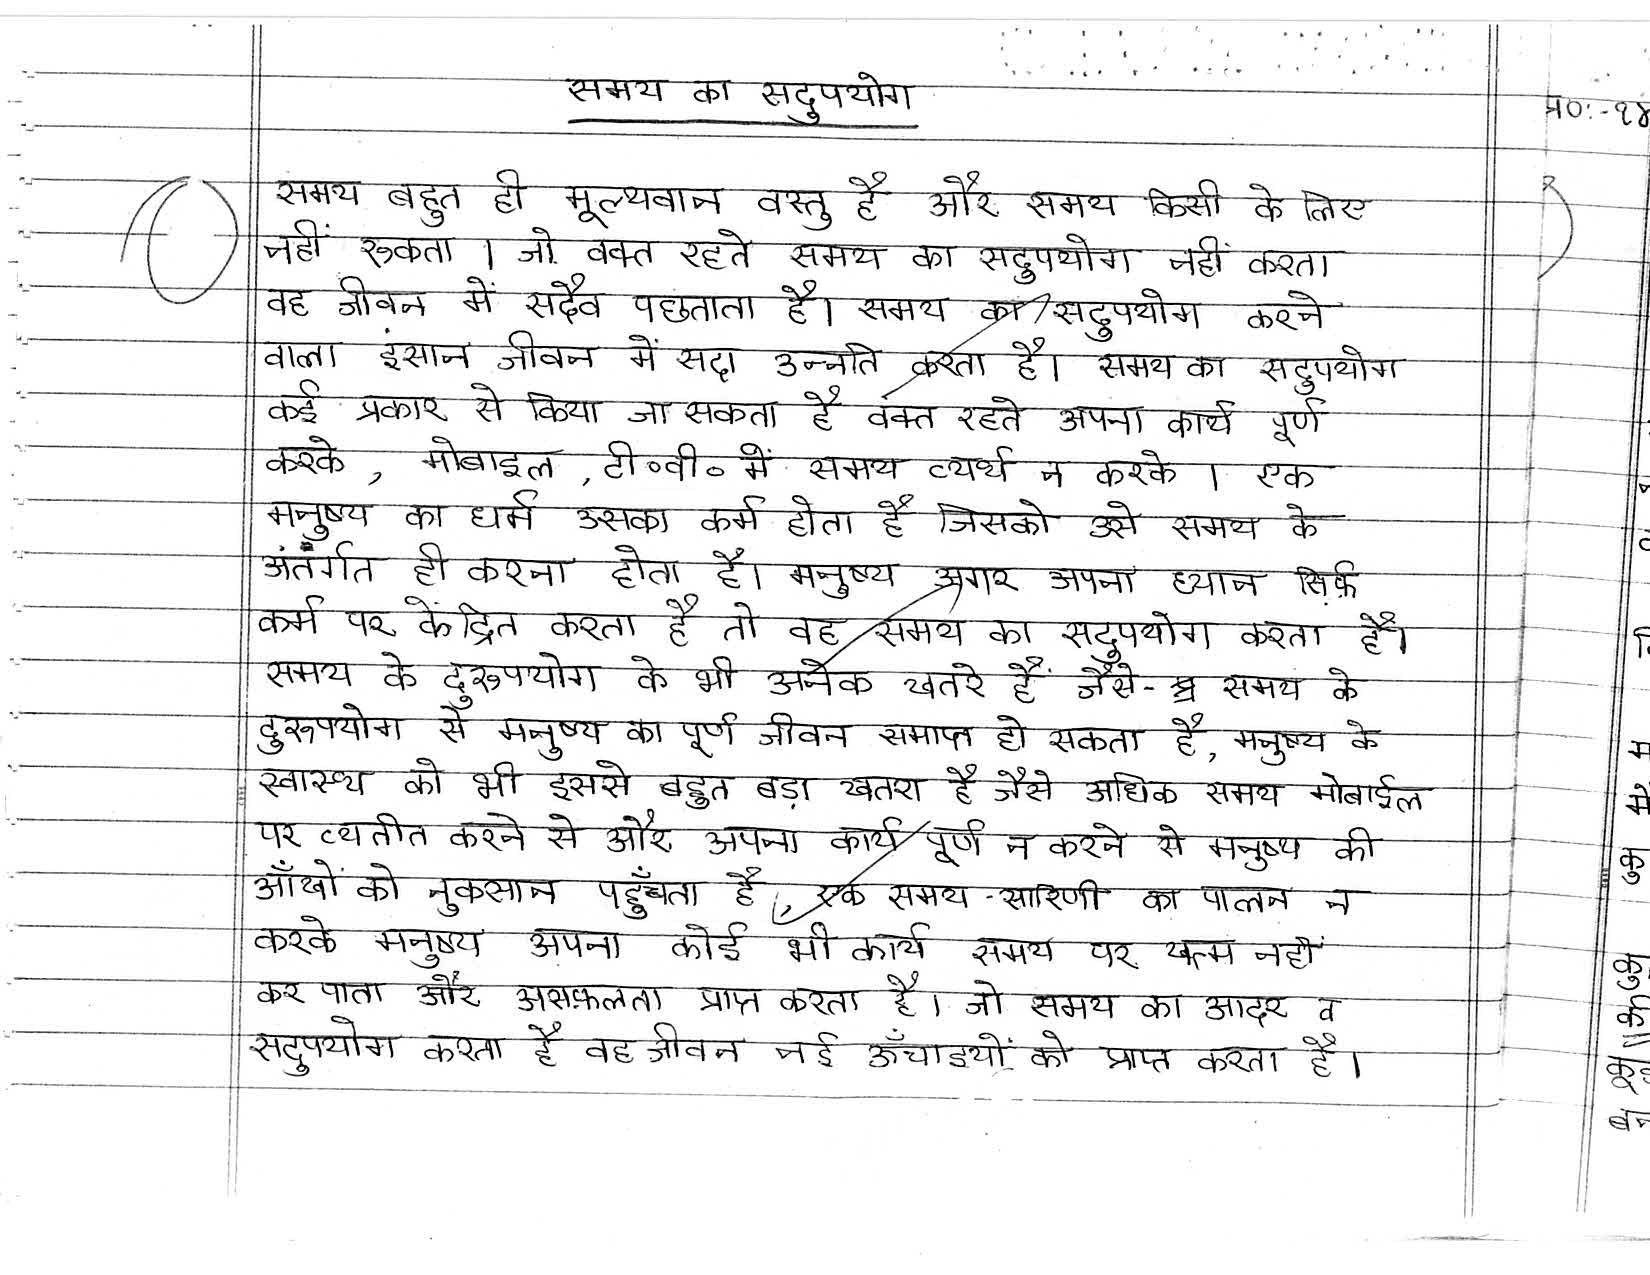 समय का सदुपयोग
प्र०:-१४
समय बहुत ही मूल्यवान वस्तु है और समय किसी के लिए
नहीं रुकता । जो वक्त रहते समय का सदुपयोग नहीं करता
वह जीवन में सदैव पछताता है। समय का सदुपयोग करने
वाला इंसान जीवन में सदा उन्नति करता है। समय का सदुपयोग
कई प्रकार से किया जा सकता है वक्त रहते अपना कार्य पूर्ण
करके , मोबाइल , टी०वी० में समय व्यर्थ न करके । एक
मनुष्य का धर्म उसका कर्म होता है जिसको उसे समय के
अंतर्गत ही करना होता है। मनुष्य अगर अपना ध्यान सिर्फ़
कर्म पर केंद्रित करता है तो वह समय का सदुपयोग करता है।
समय के दुरुपयोग के भी अनेक खतरे हैं जैसे- समय के
दुरुपयोग से मनुष्य का पूर्ण जीवन समाप्त हो सकता है, मनुष्य के
स्वास्थ्य को भी इससे बहुत बड़ा खतरा है जैसे अधिक समय मोबाईल
पर व्यतीत करने से और अपना कार्य पूर्ण न करने से मनुष्य की
आँखों को नुकसान पहुँचता है, एक समय-सारिणी का पालन न
करके मनुष्य अपना कोई भी कार्य समय पर खत्म नहीं
कर पाता और असफ़लता प्राप्त करता है। जो समय का आदर व
सदुपयोग करता है वह जीवन नई ऊँचाइयों को प्राप्त करता है।